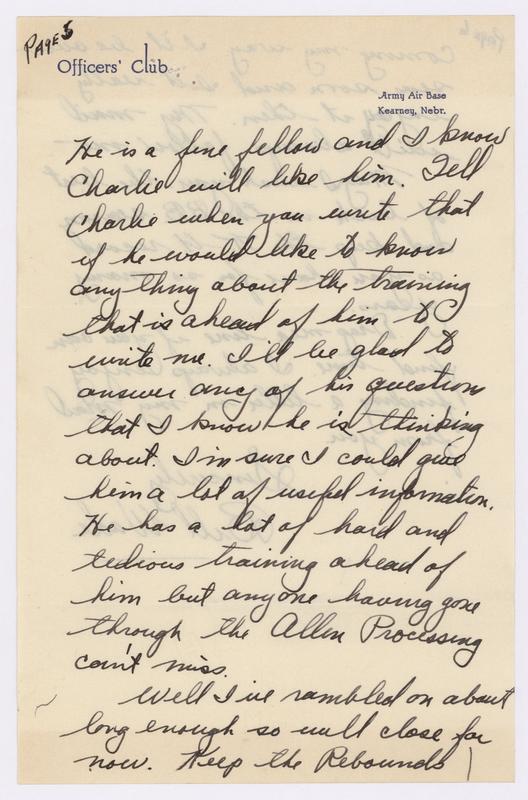 PAGE 5
Officers' Club
Army Air Base
Kearney, Nebr.
He is a fine fellow and I know
Charlie will like him. Tell
Charlie when you write that
if he would like to know
any thing about the training
that is ahead of him to
write me. I'll be glad to
answer any of his questions
that I know he is thinking
about. I'm sure I could give
him a lot of useful information.
He has a lot of hard and
tedious training ahead of
him but anyone having gone
through the Allen Processing
can't miss.
Well I've rambled on about
long enough so will close for
now. Keep the Rebounds